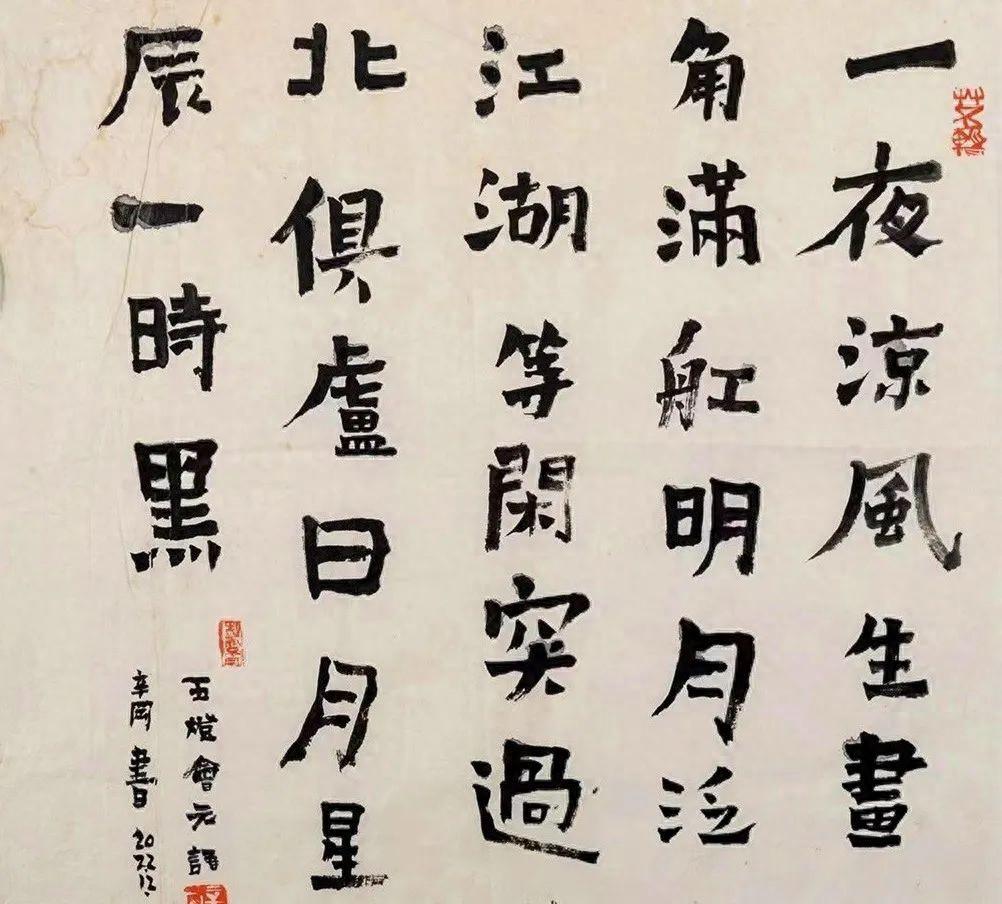 一夜涼風生畫
角滿舡明月泛
江湖等閑突過
北俱盧日月星
辰一時黑
五燈會元語
辛岡書 2022.12.